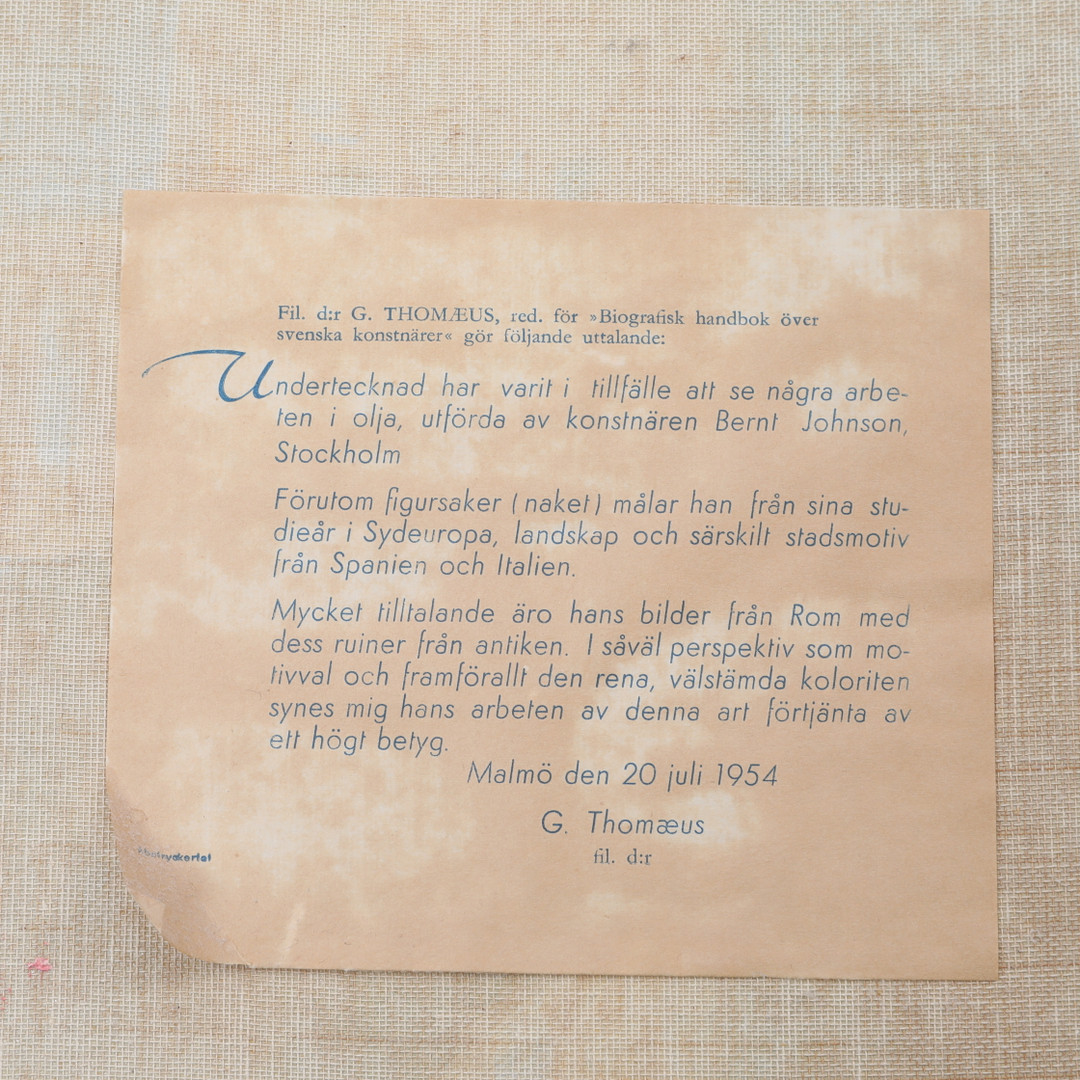 Fil. d:r G. THOMÆUS, red. för »Biografisk handbok över
svenska konstnärer« gör följande uttalande:
Undertecknad har varit i tillfälle att se några arbe-
ten i olja, utförda av konstnären Bernt Johnson,
Stockholm
Förutom figursaker (naket) målar han från sina stu-
dieår i Sydeuropa, landskap och särskilt stadsmotiv
från Spanien och Italien.
Mycket tilltalande äro hans bilder från Rom med
dess ruiner från antiken. I såväl perspektiv som mo-
tivval och framförallt den rena, välstämda koloriten
synes mig hans arbeten av denna art förtjänta av
ett högt betyg.
Malmö den 20 juli 1954
G. Thomæus
fil. d:r